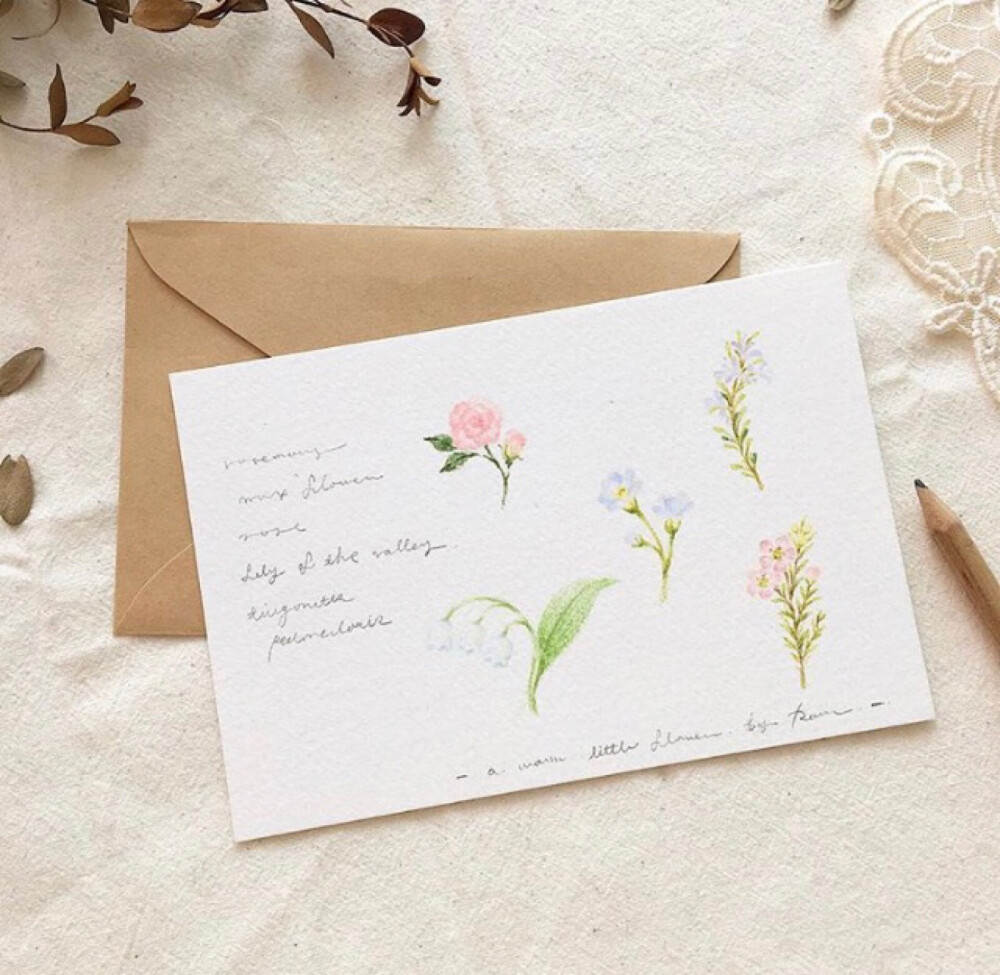 rosemary
wax flower
rose
lily of the valley.
- a warm little flower. by